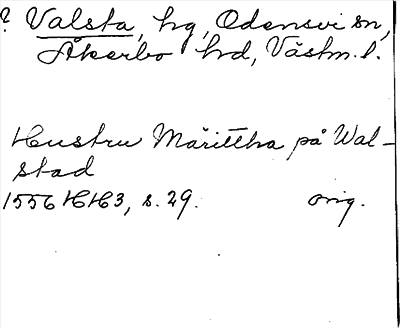 ? Valsta, hg, Odensvi sn,
Åkerbo hd, Västm. l.
Hustru Märittha på Wal-
stad
1556 HH3, s. 29. orig.